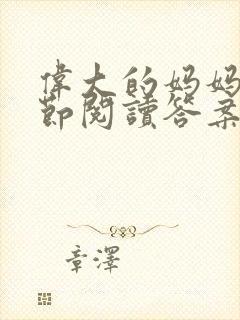 偉大的妈妈
節閱讀答案
章澤